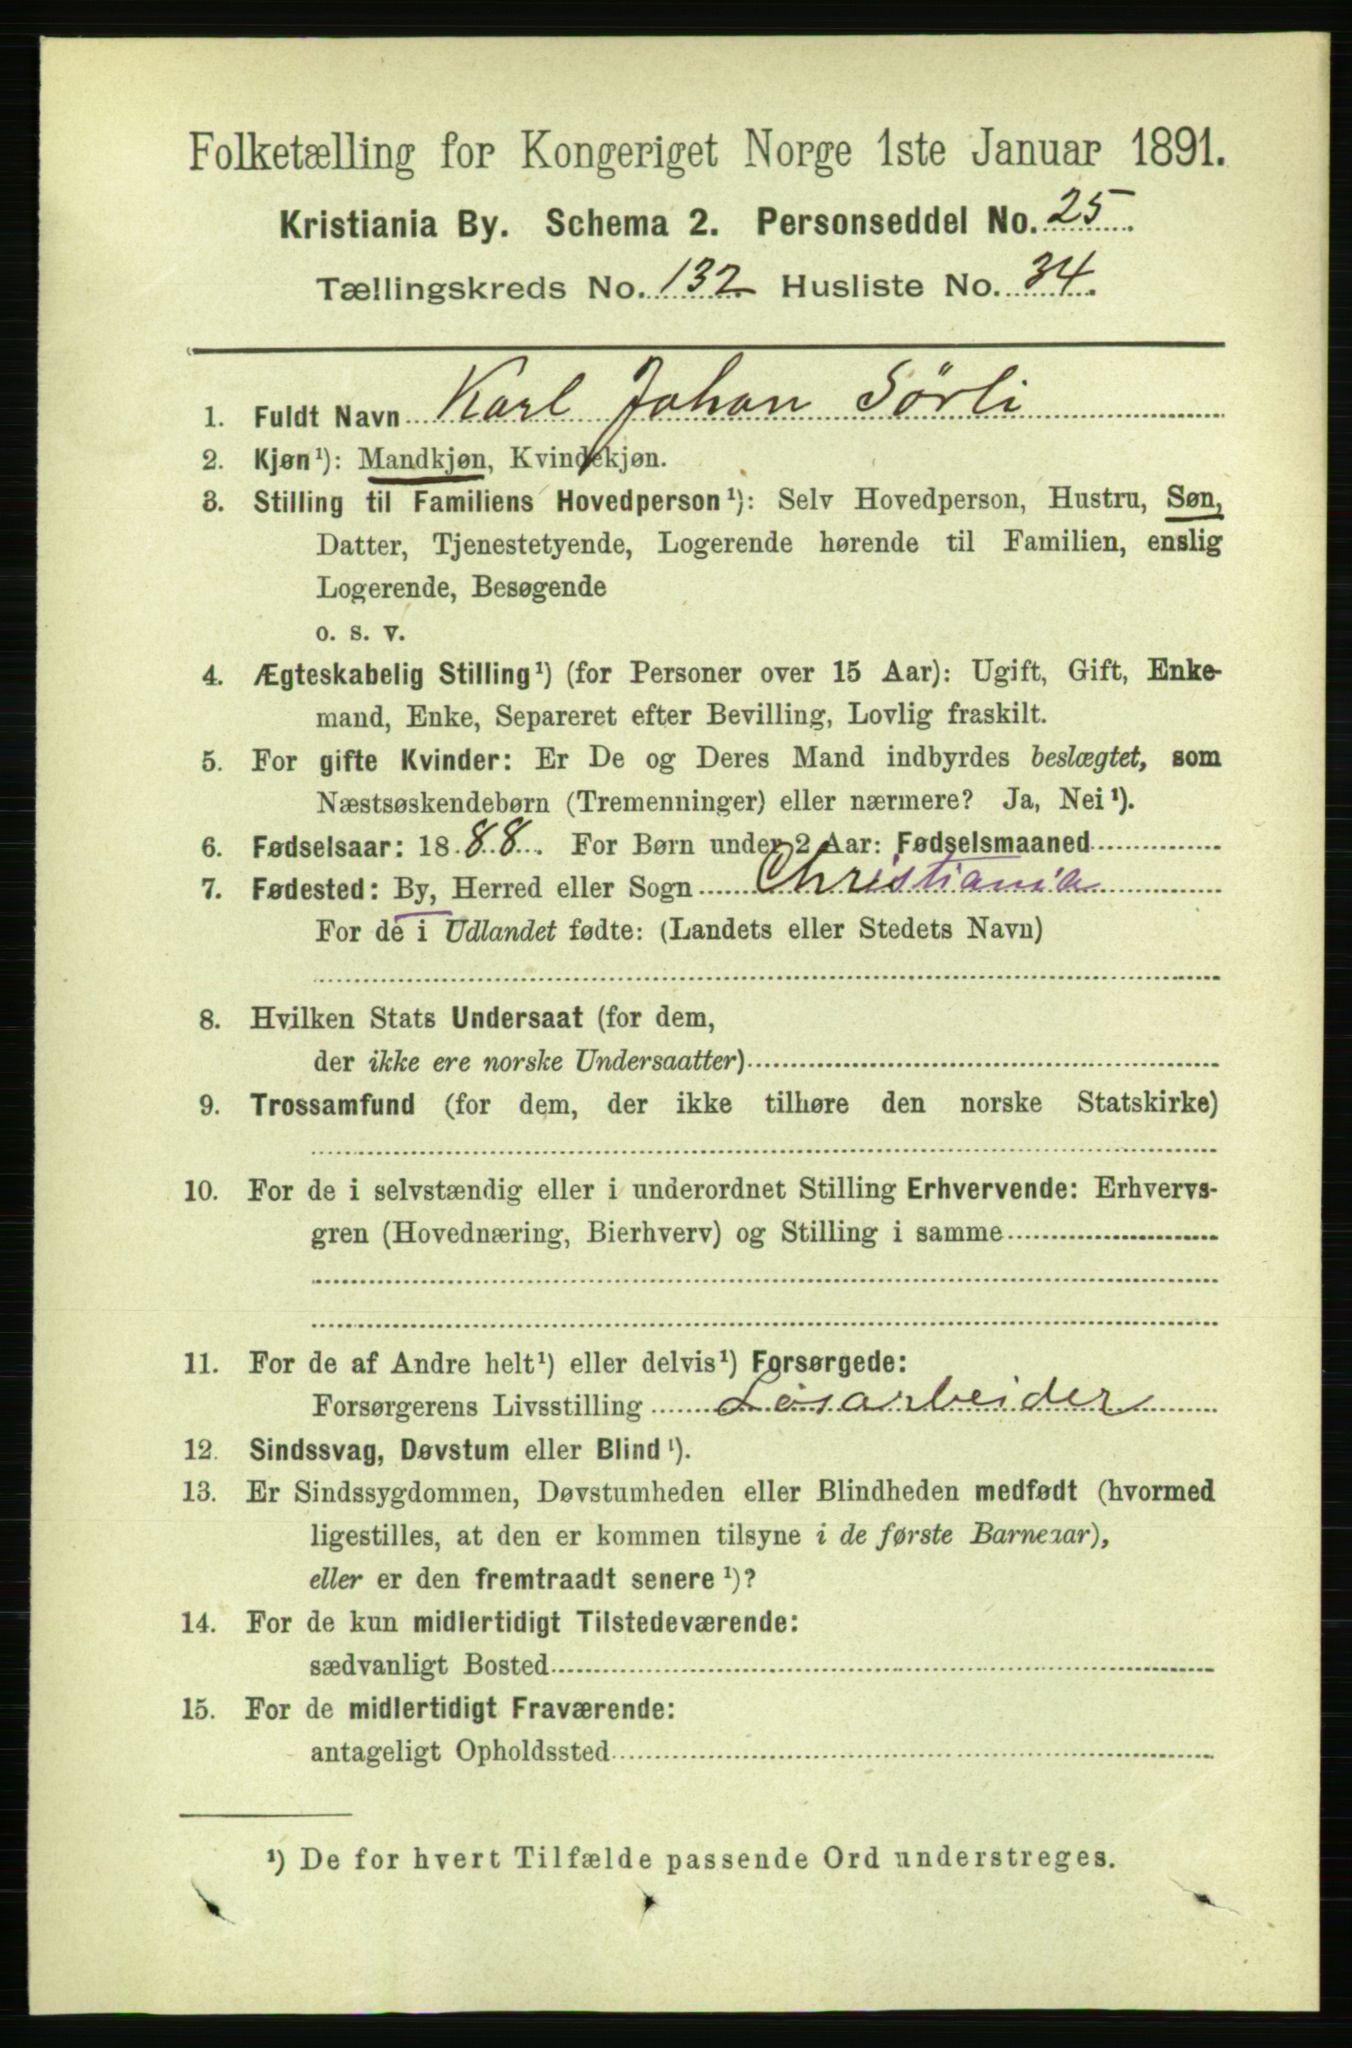 Folketælling for Kongeriget Norge 1ste Januar 1891.
Kristiania By. Schema 2. Personseddel No. 25
Tællingskreds No. 132 Husliste No. 34.
1. Fuldt Navn Karl Johan Sörli
2. Kjøn¹): Mandkjøn, Kvindekjøn.
3. Stilling til Familiens Hovedperson¹): Selv Hovedperson, Hustru, Søn,
Datter, Tjenestetyende, Logerende hørende til Familien, enslig
Logerende, Besøgende
o. s. v.
4. Ægteskabelig Stilling¹) (for Personer over 15 Aar): Ugift, Gift, Enke-
mand, Enke, Separeret efter Bevilling, Lovlig fraskilt.
5. For gifte Kvinder: Er De og Deres Mand indbyrdes beslægtet, som
Næstsøskendebørn (Tremenninger) eller nærmere? Ja, Nei¹).
6. Fødselsaar: 1888. For Børn under 2 Aar: Fødselsmaaned
7. Fødested: By, Herred eller Sogn Christiania
For de i Udlandet fødte: (Landets eller Stedets Navn)
8. Hvilken Stats Undersaat (for dem,
der ikke ere norske Undersaatter)
9. Trossamfund (for dem, der ikke tilhøre den norske Statskirke)
10. For de i selvstændig eller i underordnet Stilling Erhvervende: Erhvervs-
gren (Hovednæring, Bierhverv) og Stilling i samme
11. For de af Andre helt¹) eller delvis¹) Forsørgede:
Forsørgerens Livsstilling Løsarbeider
12. Sindssvag, Døvstum eller Blind¹).
13. Er Sindssygdommen, Døvstumheden eller Blindheden medfødt (hvormed
ligestilles, at den er kommen tilsyne i de første Barneaar),
eller er den fremtraadt senere¹)?
14. For de kun midlertidigt Tilstedeværende:
sædvanligt Bosted
15. For de midlertidigt Fraværende:
antageligt Opholdssted
¹) De for hvert Tilfælde passende Ord understreges.